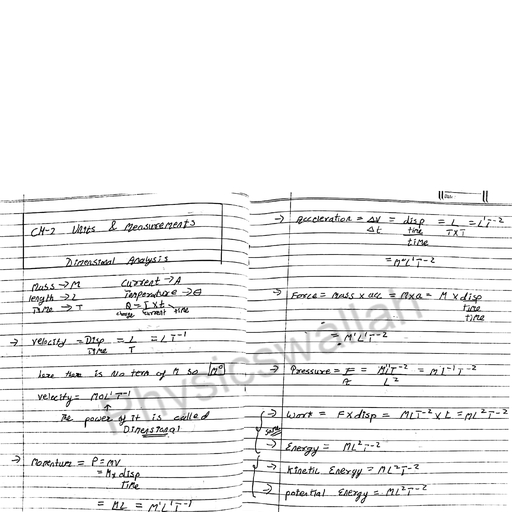 CH-2 Units & Measurements
Dimensional Analysis
Mass → M Current → A
length → L Temperature → θ
Time → T Q = I x t
charge current time
→ Velocity = Disp = L = LT⁻¹
Time T
here there is No term of M so M⁰
Velocity = M0L¹T⁻¹
↑
The power of it is called
Dimensional
→ Momentum = P = MV
= M x disp
Time
= ML = M¹L¹T⁻¹
→ Acceleration = ΔV = disp = L = L¹T⁻²
Δt time TxT
time
= M⁰L¹T⁻²
→ Force = mass x acc = Mxa = M x disp
time
time
= M¹L¹T⁻²
→ Pressure = F = M¹LT⁻² = M¹L⁻¹T⁻²
A L²
→ Work = F x disp = MLT⁻² x L = ML²T⁻²
same
→ Energy = ML²T⁻²
→ Kinetic Energy = ML²T⁻²
→ potential Energy = ML²T⁻²
Physicswallah